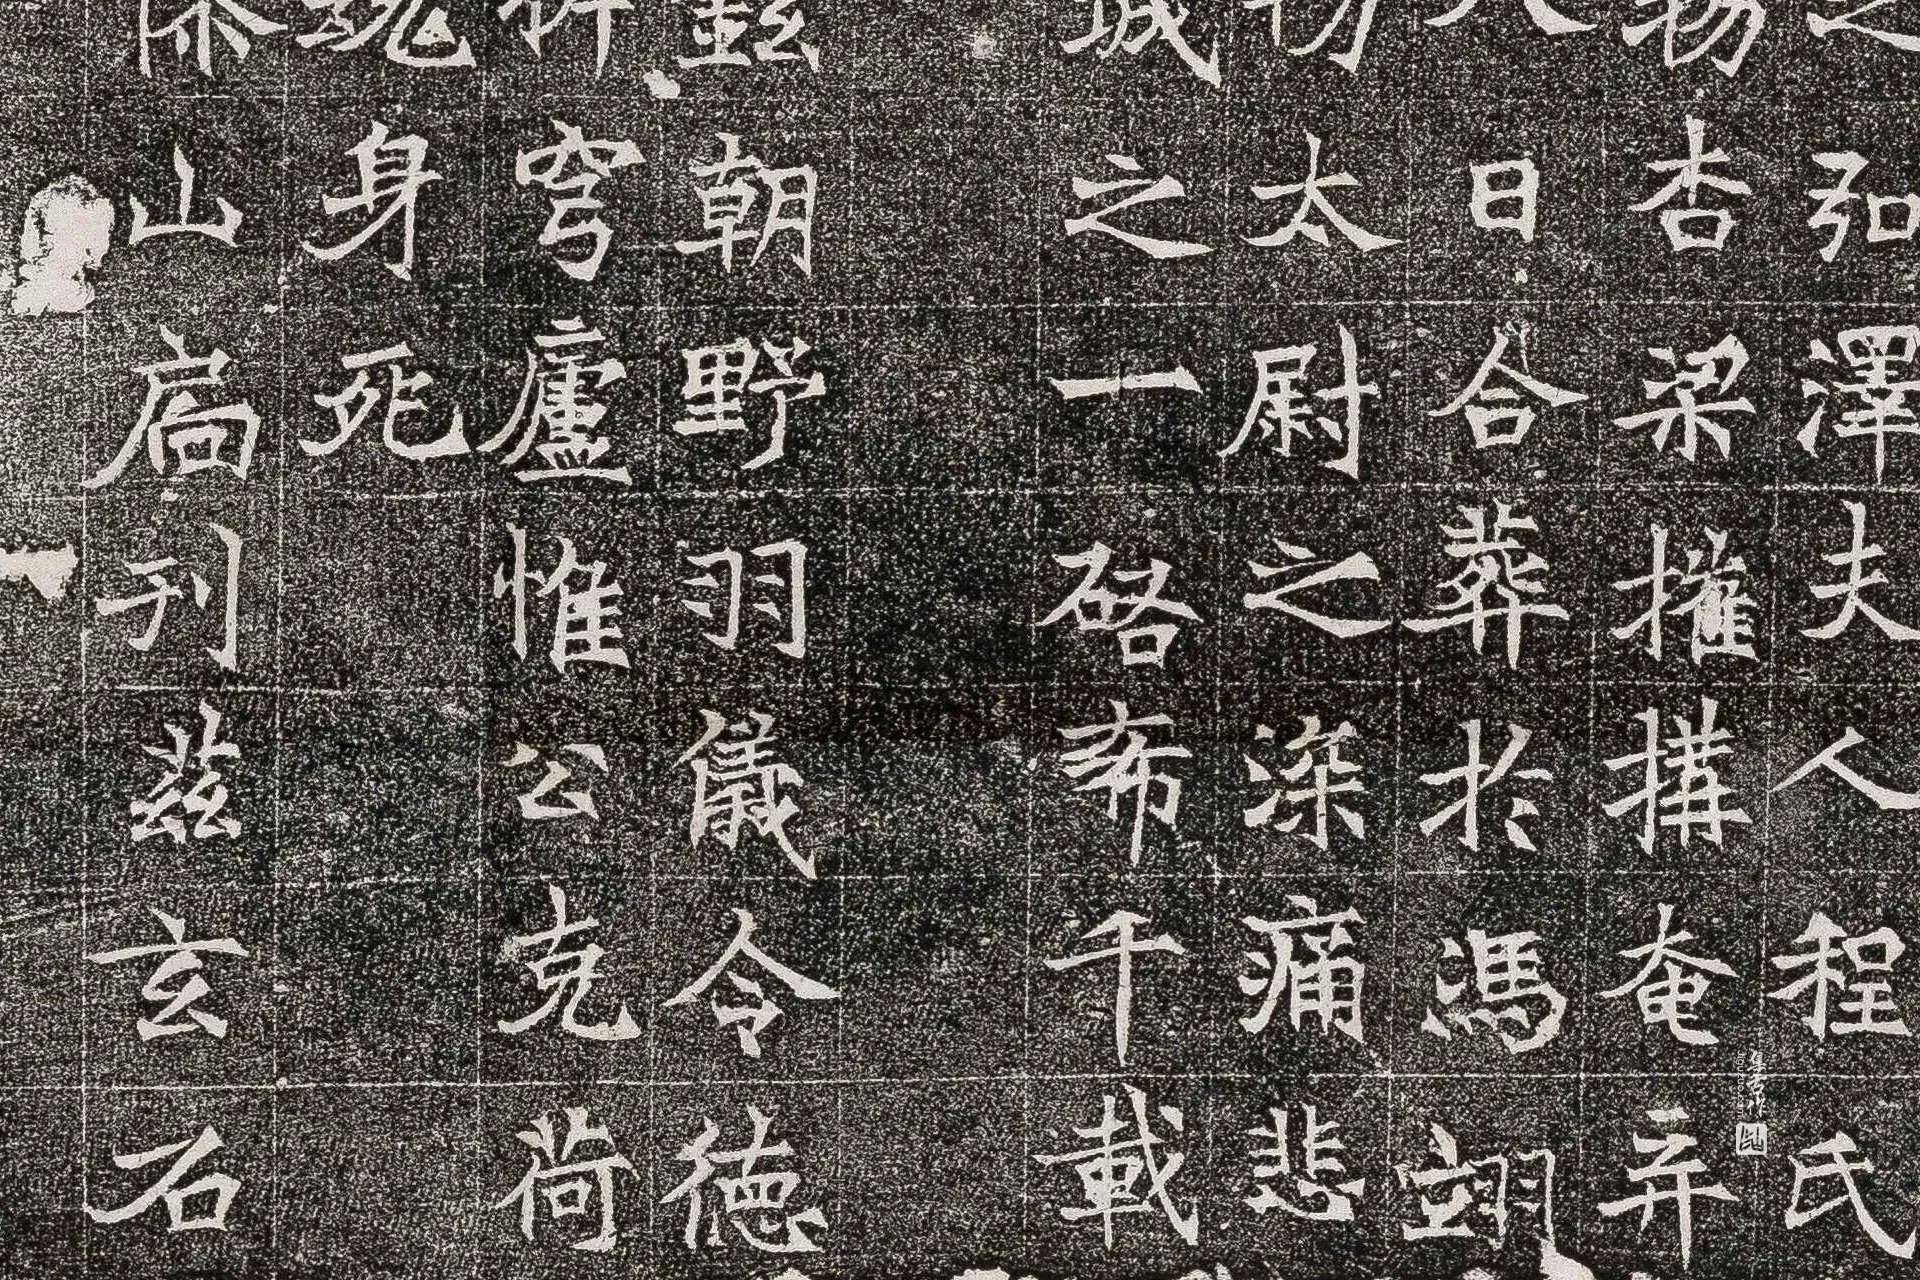 之弘澤夫人程氏
物杏梁摧構奄弃
日合葬於馮翊
太尉之深痛悲
誠之一布千載
朝野羽儀令德
穹廬惟公克荷
身死
山扃刊茲玄石